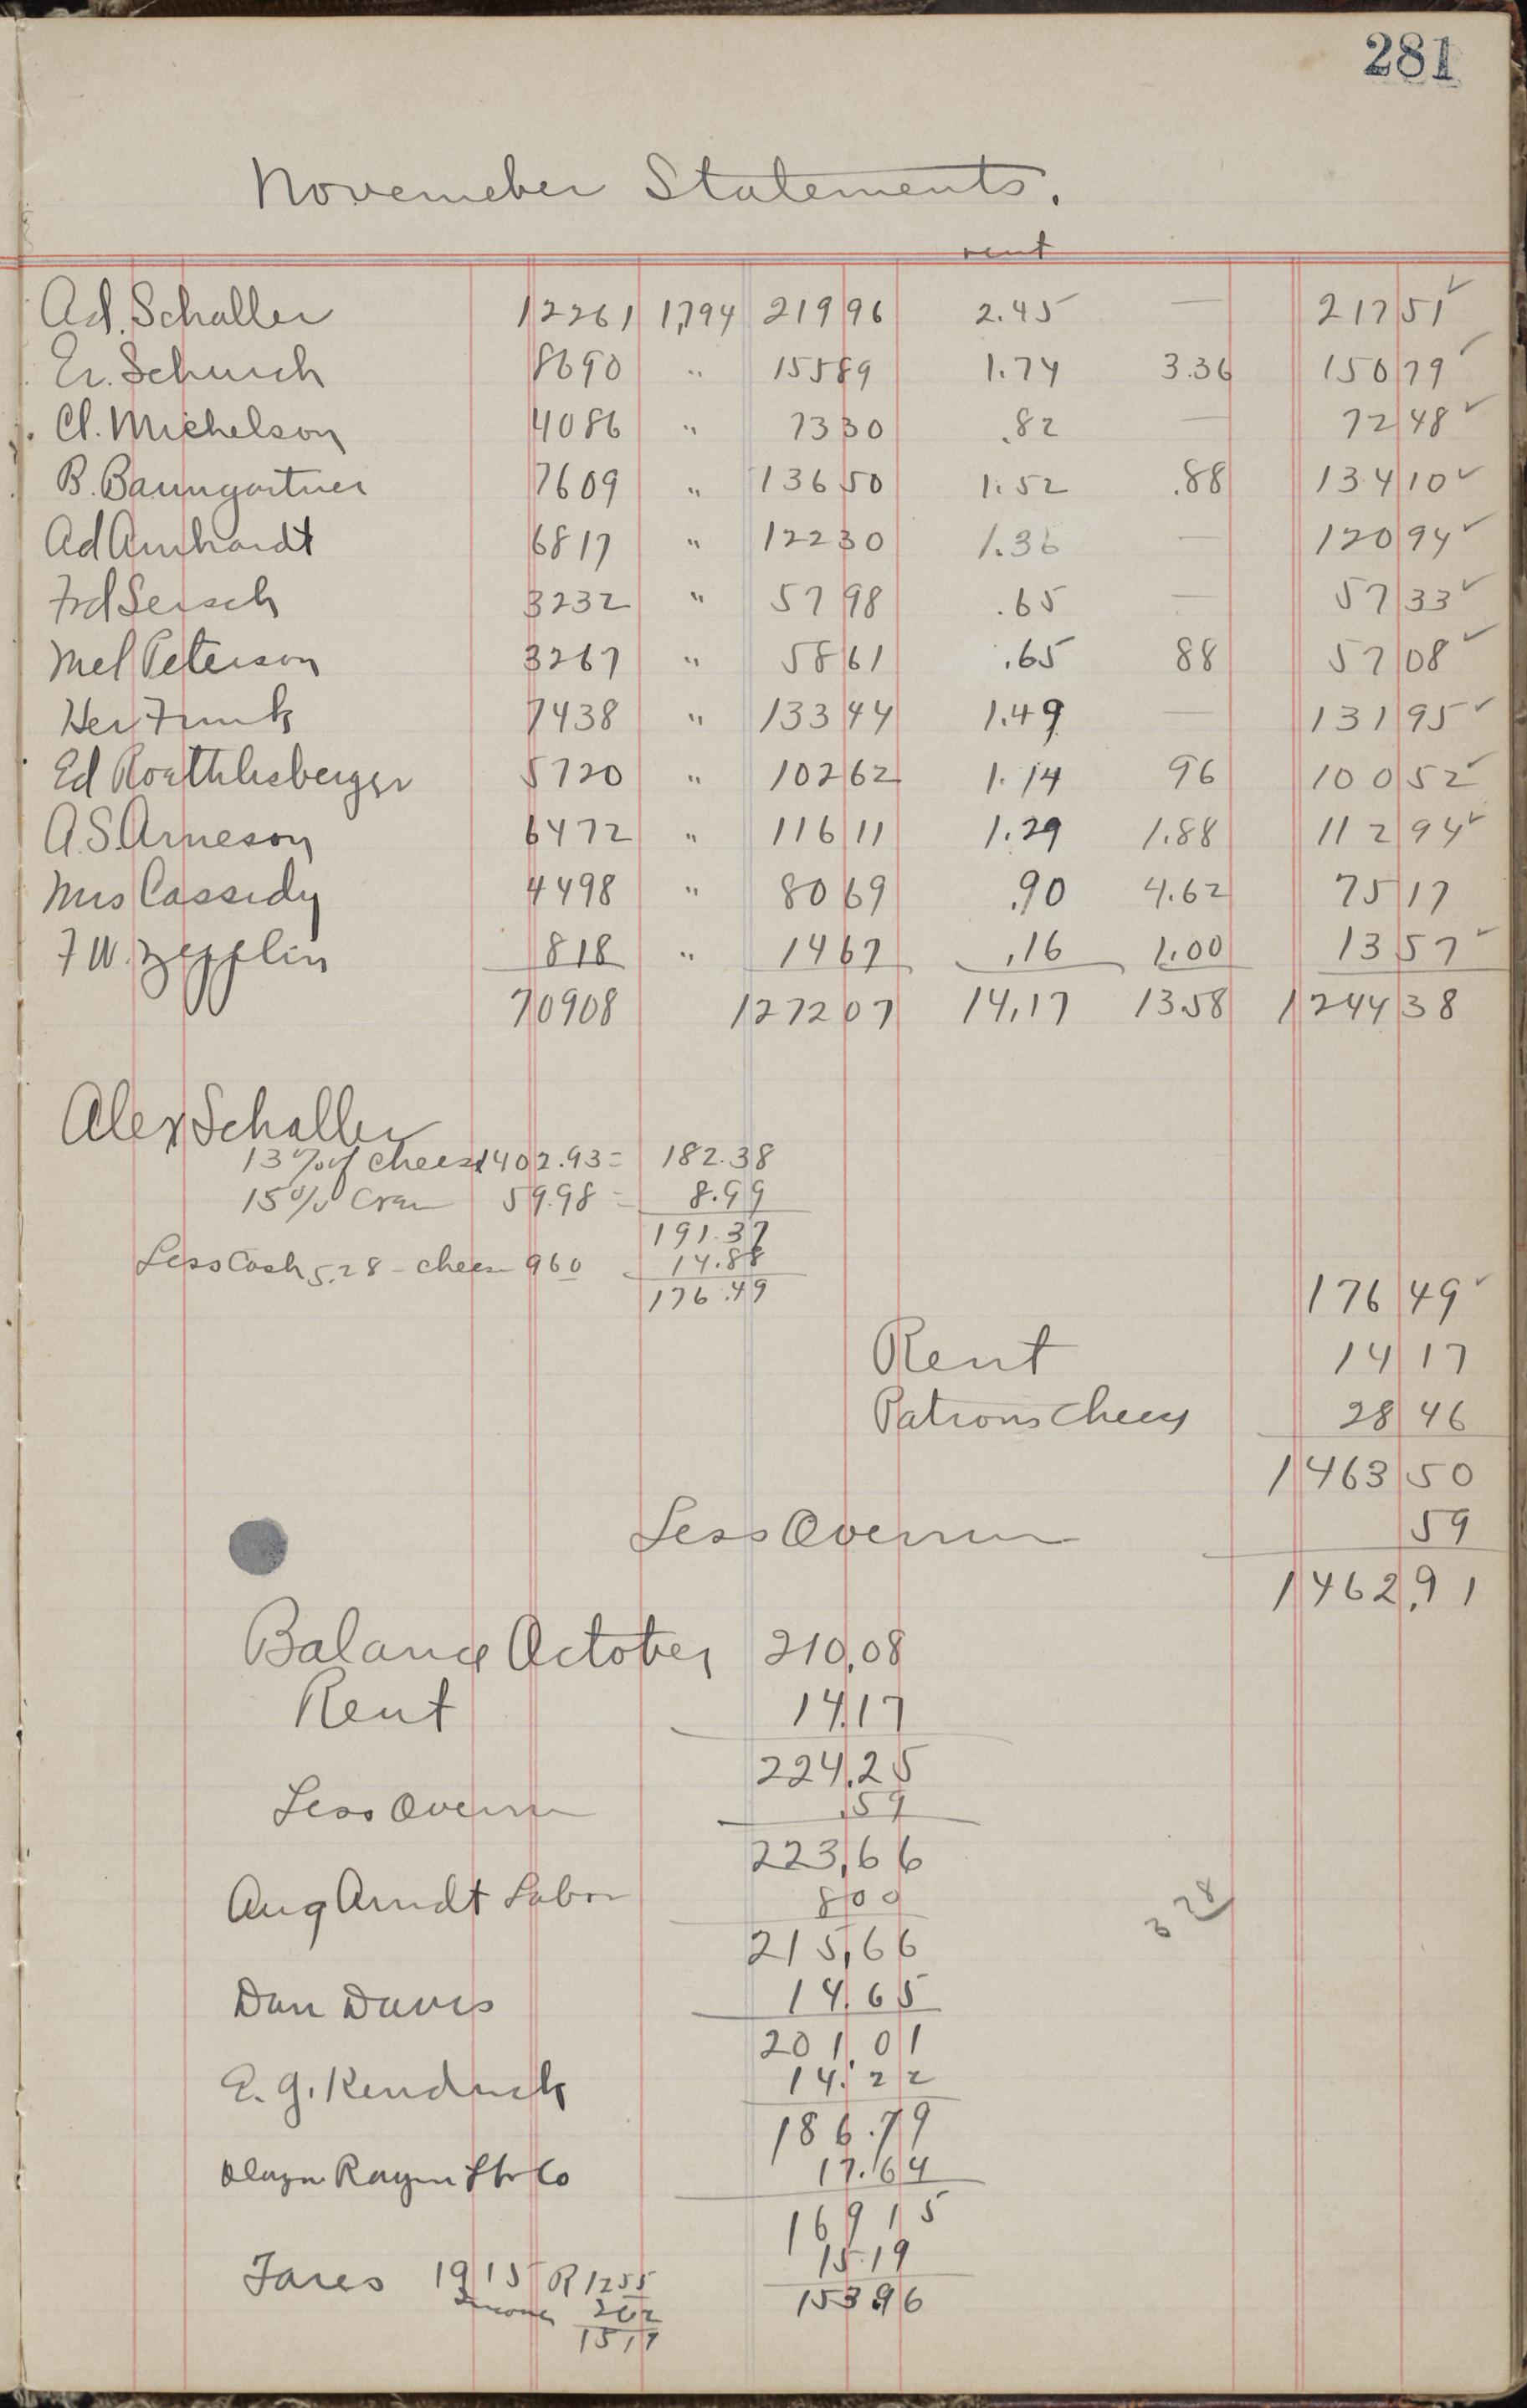 281
Novemeber Statements.
rent
Ad. Schaller 12261 1,794 219 96 2.45 — 217 51 ✓
Er. Schurch 8690 " 155 89 1.74 3.36 150 79 ✓
Cl. Michelson 4086 " 73 30 .82 — 72 48 ✓
B. Baumgartner 7609 " 136 50 1.52 .88 134 10 ✓
Ad Amhardt 6817 " 122 30 1.36 — 120 94 ✓
Frd Lersch 3232 " 57 98 .65 — 57 33 ✓
Mel Peterson 3267 " 58 61 .65 88 57 08 ✓
Her Funk 7438 " 133 44 1.49 — 131 95 ✓
Ed Roethlisberger 5720 " 102 62 1.14 96 100 52 ✓
A.S. Arneson 6472 " 116 11 1.29 1.88 112 94 ✓
Mrs Cassidy 4498 " 80 69 .90 4.62 75 17
F W. Zepplin 818 " 14 67 .16 1.00 13 57 ✓
70908 1272 07 14.17 13.58 1244 38
Alex Schaller
13% of cheese 1402.93 = 182.38
15% Cream 59.98 = 8.99
191.37
Less Cash 5.28 - cheese 960 14.88
176.49 176 49 ✓
Rent 14 17
Patrons Cheese 28 46
1463 50
Less Overrun 59
1462.91
Balance October 210.08
Rent 14.17
224.25
Less Overrun .59
223.66
Aug Arndt Labor 8 00
3 28
215.66
Dan Davis 14.65
201.01
E. G. Kendrick 14.22
186.79
17.64
169 15
Taxes 1915 R 1255 15.19
Income 262 153.96
1517